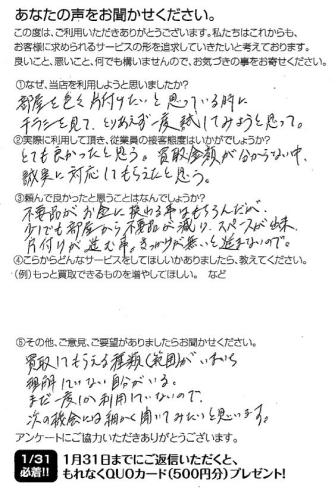 あなたの声をお聞かせください。
この度は、ご利用いただきありがとうございます。私たちはこれからも、
お客様に求められるサービスの形を追求していきたいと考えております。
良いこと、悪いこと、何でも構いませんので、お気づきの事をお寄せください。
①なぜ、当店を利用しようと思いましたか?
部屋を色々片付けたいと思っている時に
チラシを見て、とりあえず一度試してみようと思って。
②実際に利用して頂き、従業員の接客態度はいかがでしょうか?
とても良かったと思う。買取金額が分からない中、
誠実に対応してもらえたと思う。
③頼んで良かったと思うことはなんでしょうか?
不要品がお金に換わる事はもちろんだが、
少しでも部屋から不要品が減り、スペースが出来、
片付けが進む事。きっかけが無いと進まないので。
④こらからどんなサービスをしてほしいかありましたら、教えてください。
(例)もっと買取できるものを増やしてほしい。 など
⑤その他、ご意見、ご要望がありましたらお聞かせください。
買取してもらえる種類(範囲)がいまいち
理解していない自分がいる。
まだ一度しか利用していないので、
次の機会には細かく聞いてみたいと思います。
アンケートにご協力いただきありがとうございます。
1/31
必着!!
1月31日までにご返信いただくと、
もれなくQUOカード(500円分)プレゼント!